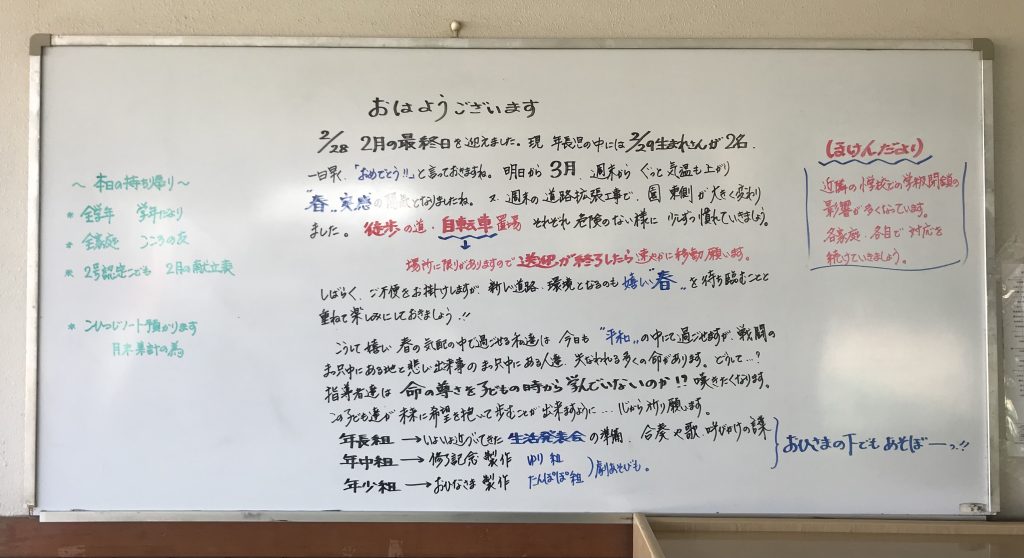 おはようございます
2/28 2月の最終日を迎えました。現 年長児の中には 2/29生まれさんが2名.
一日早く、「おめでとう!!」と言っておきますね。 明日から 3月、週末から ぐっと気温も上がり
"春"実感の となりましたね。 又 週末の道路拡張工事で、園 東側が大きく変わり
ました。 徒歩の道・自転車置場 それぞれ危険のない様に 少しずつ慣れていきましょう。
場所に限りがありますので 送迎が終了したら 速やかに移動願います。
しばらく、ご不便をお掛けしますが、新しい道路・環境となるのも 嬉しい"春"を待ち臨むことと
重ねて楽しみにしておきましょう!!
こうして嬉しい 春の気配の中で過ごせる私達は 今日も "平和"の中で過ごせますが、戦闘の
まっ只中にある地と悲しい出来事のまっ只中にある人達、失なわれる多くの命があります。どうして…?
指導者達は 命の尊さを子どもの時から学んでいないのか!? 嘆きたくなります。
この子ども達が 未来に希望を抱いて歩むことが出来ますように… 心から祈り願います。
年長組 →いよいよ近づいてきた 生活発表会の準備、合奏や歌、呼びかけの課
年中組 → 修了記念 製作 ゆり組
年少組 → おひなさま 製作 たんぽぽ組 劇あそびも。
おひさまの下でも あそぼーっ!!
~ 本日の持ち帰り ~
* 全学年 学年だより
* 全家庭 こころの友
* 2号認定こども 2月の献立表
* こひつじノート預かります
月末集計の為
ほけんだより
近隣の小学校での学級閉鎖の
影響が多くなっています。
各家庭・各自で 対応を
続けていきましょう。